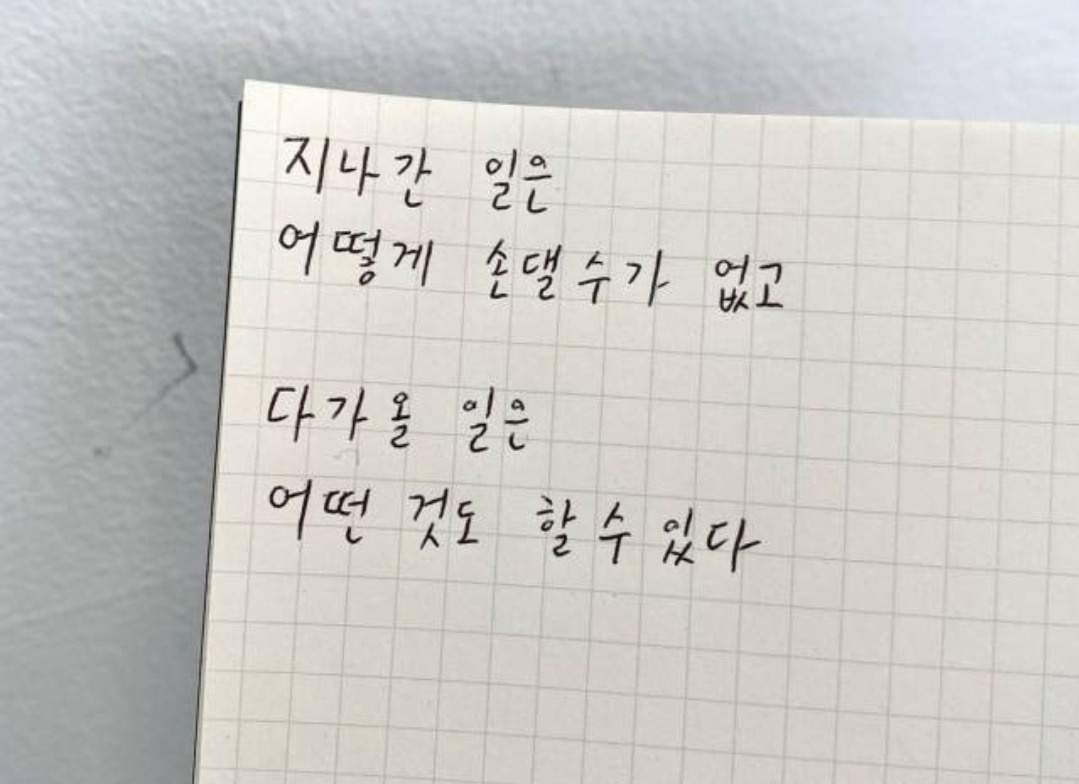 지나간 일은
어떻게 손댈 수가 없고
다가올 일은
어떤 것도 할 수 있다